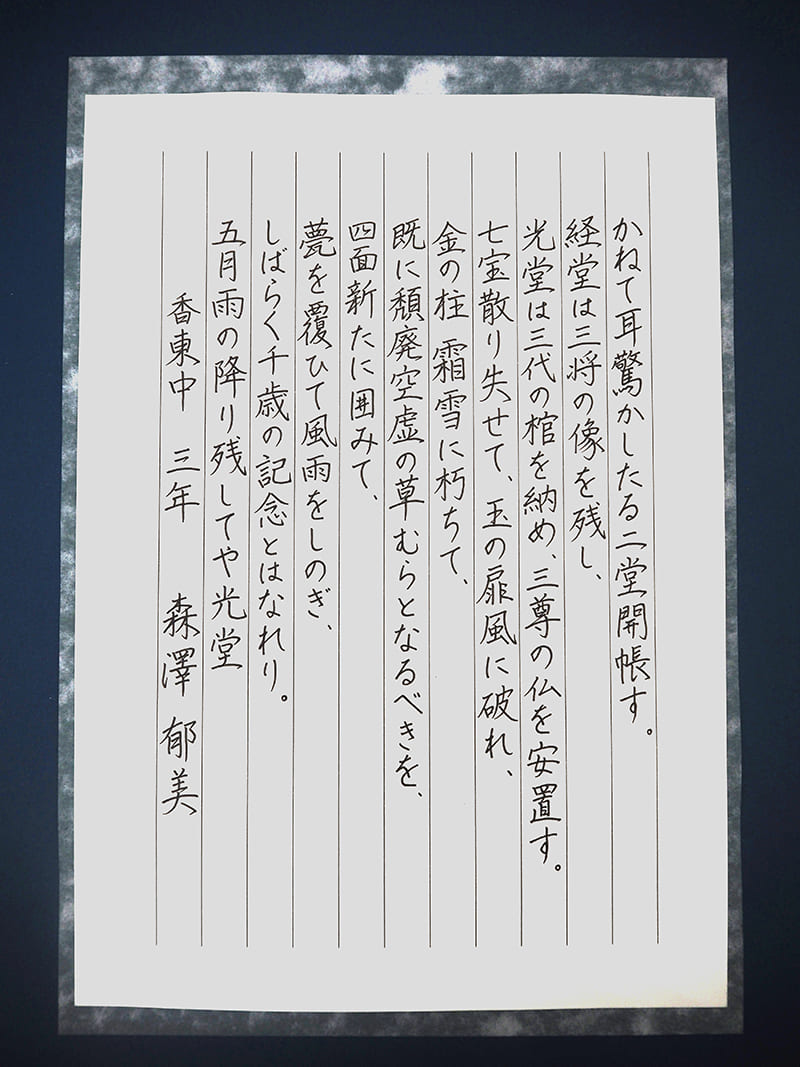 かねて耳驚かしたる二堂開帳す。
経堂は三将の像を残し、
光堂は三代の棺を納め、三尊の仏を安置す。
七宝散り失せて、玉の扉風に破れ、
金の柱 霜雪に朽ちて、
既に頽廃空虚の草むらとなるべきを、
四面新たに囲みて、
甍を覆ひて風雨をしのぎ、
しばらく千歳の記念とはなれり。
五月雨の降り残してや光堂
香東中 三年 森澤 郁美